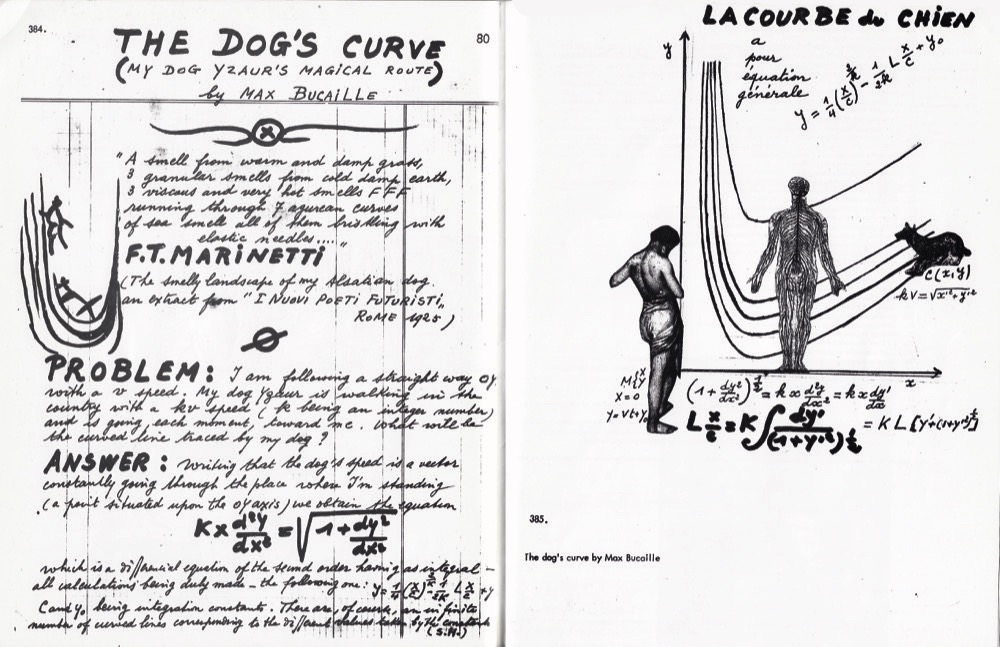 384.
80
THE DOG'S CURVE
(MY DOG YZAUR'S MAGICAL ROUTE)
by MAX BUCAILLE
"A smell from warm and damp grass,
3 granular smells from cold damp earth,
3 viscous and very hot smells FFF
running through 7 azurean curves
of sea smell all of them bristling with
elastic needles....."
F.T. MARINETTI
(The smelly landscape of my Alsatian dog.
an extract from "I NUOVI POETI FUTURISTI,,
ROME 1925)
PROBLEM: I am following a straight way OY
with a v speed. My dog Yzaur is walking in the
country with a kv speed (k being an integer number)
and is going, each moment, toward me. What will be
the curved line traced by my dog?
ANSWER: Writing that the dog's speed is a vector
constantly going through the place where I'm standing
(a point situated upon the OY axis) we obtain the equation
K x d²y/dx² = √(1 + dy²/dx²)
which is a differential equation of the second order having as integral -
all calculations being duly made - the following one: y = 1/4 (x/c)^2/k - 1/2k L x/c + y
C and y₀ being integration constants. There are, of course, an infinite
number of curved lines corresponding to the different values taken by the constants
(S.M.)
LA COURBE du CHIEN
a
pour
équation
générale
y = 1/4 (x/c)^2/k - 1/2k L x/c + y₀
y
C (x, y)
kV = √x'² + y'²
x
M { X Y
X = 0
Y = Vt + Y₀
(1 + dy²/dx²)^1/2 = k x d²y/dx² = k x dy'/dx
L x/c = K ∫ dy'/(1+y'²)^1/2 = K L [y'+(1+y'²)^1/2]
385.
The dog's curve by Max Bucaille